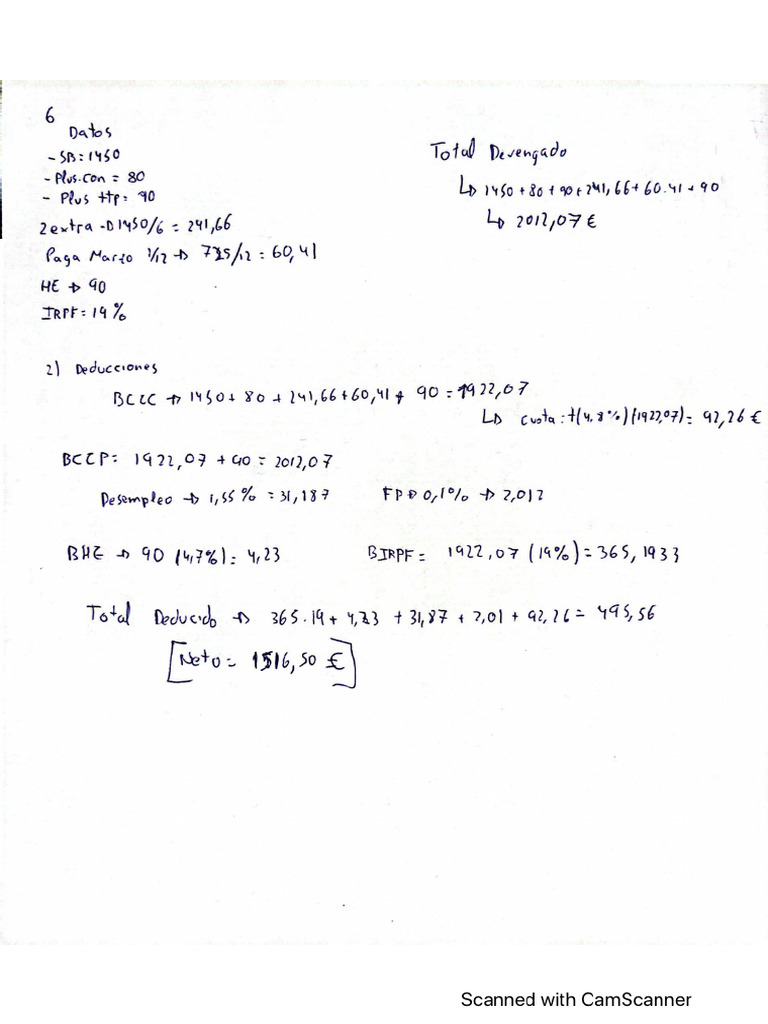 6
Datos
- SB: 1450
- Plus.con = 80
- Plus ttp: 90
2 extra → 1450/6 = 241,66
Paga Marzo 1/12 → 725/12 = 60,41
HE → 90
IRPF = 19%
Total Devengado
↳ 1450 + 80 + 90 + 241,66 + 60.41 + 90
↳ 2012,07 €
2) Deducciones
BCCC → 1450 + 80 + 241,66 + 60,41 + 90 = 1922,07
↳ Cuota: + (4,8%) (1922,07) = 92,26 €
BCCP = 1922,07 + 90 = 2012,07
Desempleo → 1,55% = 31,187
FP → 0,1% → 2,012
BHE → 90 (4,7%) = 4,23
BIRPF = 1922,07 (19%) = 365,1933
Total Deducido → 365.19 + 4,23 + 31,87 + 2,01 + 92,26 = 495,56
[Neto = 1516,50 €]
Scanned with CamScanner